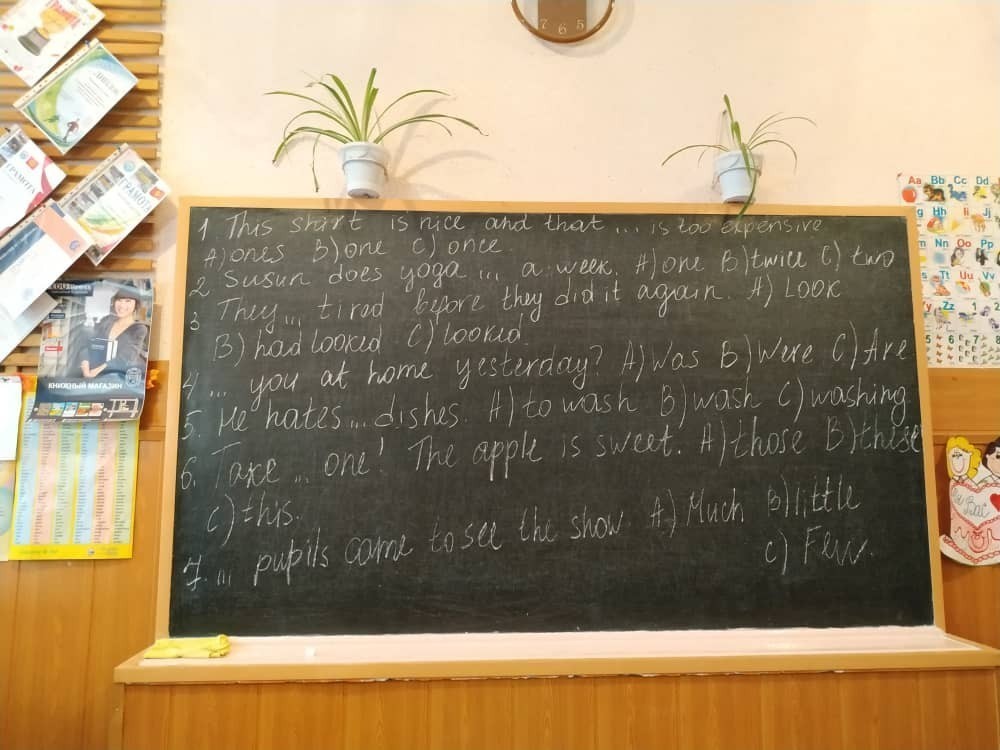 7 6 5
ГРАМОТА
ДИПЛОМ
ГРАМОТА
ГРАМОТА
КНИЖНЫЙ МАГАЗИН
1 This shirt is nice and that ... is too expensive
A) ones B) one C) once
2 Susun does yoga ... a week. A) one B) twice C) two
3 They ... tired before they did it again. A) LOOK
B) had looked C) looked
4 ... you at home yesterday? A) Was B) Were C) Are
5. He hates ... dishes. A) to wash B) wash C) washing
6. Take ... one! The apple is sweet. A) those B) these
C) this.
7. ... pupils came to see the show. A) Much B) little
C) Few.
Aa Bb Cc Dd
Hh Ii Jj
Nn Oo Pp
Tt Uu Vv
Yy Zz 1 2
Вас